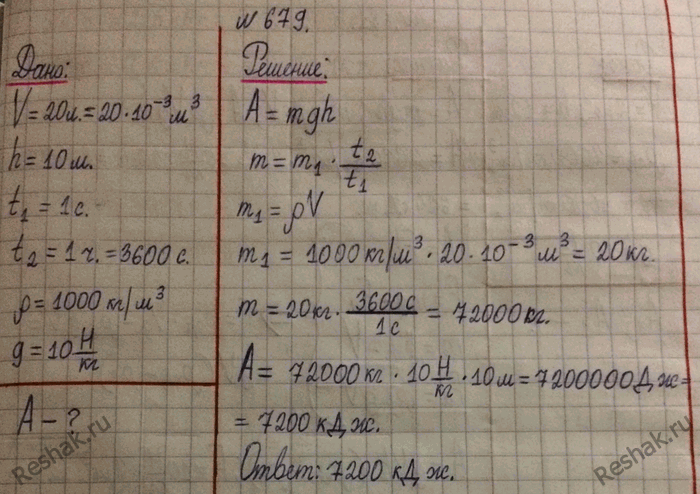 № 679.
Дано:
V = 20л. = 20 · 10⁻³ м³
h = 10 м.
t₁ = 1 с.
t₂ = 1 ч. = 3600 с.
ρ = 1000 кг/м³
g = 10 Н/кг
A – ?
Решение:
A = mgh
m = m₁ · t₂/t₁
m₁ = ρV
m₁ = 1000 кг/м³ · 20 · 10⁻³ м³ = 20 кг.
m = 20 кг · 3600 с/1 с = 72000 кг.
A = 72000 кг · 10 Н/кг · 10 м = 7200000 Дж =
= 7200 кДж.
Ответ: 7200 кДж.
Reshak.ru
Reshak.ru